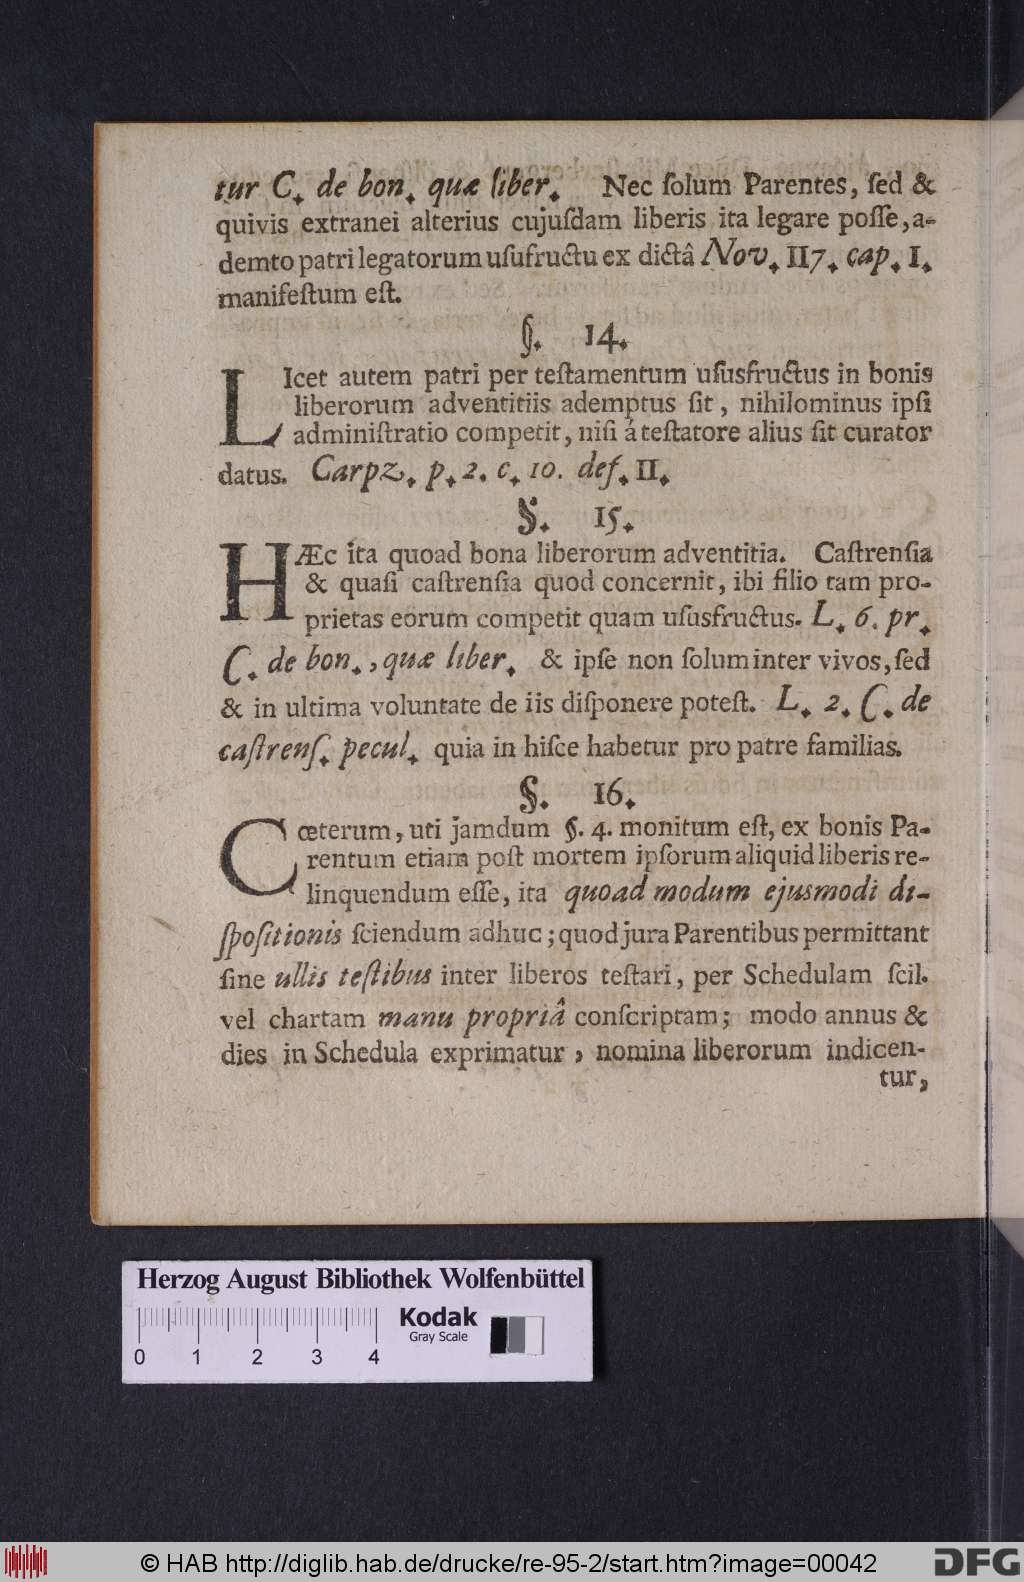 tur C. de bon. quæ liber. Nec ſolum Parentes, ſed &
quivis extranei alterius cujuſdam liberis ita legare poſſe, a-
demto patri legatorum uſufructu ex dictâ Nov. II7. cap. I.
manifeſtum eſt.
§. 14.
LIcet autem patri per teſtamentum uſusfructus in bonis
liberorum adventitiis ademptus ſit, nihilominus ipſi
adminiſtratio competit, niſi á teſtatore alius ſit curator
datus. Carpz. p. 2. c. 10. def. II.
§. 15.
HÆc ita quoad bona liberorum adventitia. Caſtrenſia
& quaſi caſtrenſia quod concernit, ibi filio tam pro-
prietas eorum competit quam uſusfructus. L. 6. pr.
C. de bon., quæ liber. & ipſe non ſolum inter vivos, ſed
& in ultima voluntate de iis diſponere poteſt. L. 2. C. de
caſtrenſ. pecul. quia in hiſce habetur pro patre familias.
§. 16.
Cœterum, uti jamdum §. 4. monitum eſt, ex bonis Pa-
rentum etiam poſt mortem ipſorum aliquid liberis re-
linquendum eſſe, ita quoad modum ejusmodi di-
ſpoſitionis ſciendum adhuc; quod jura Parentibus permittant
ſine ullis teſtibus inter liberos teſtari, per Schedulam ſcil.
vel chartam manu propriâ conſcriptam; modo annus &
dies in Schedula exprimatur, nomina liberorum indicen-
tur,
Herzog August Bibliothek Wolfenbüttel
Kodak
Gray Scale
0 1 2 3 4
© HAB http://diglib.hab.de/drucke/re-95-2/start.htm?image=00042
DFG